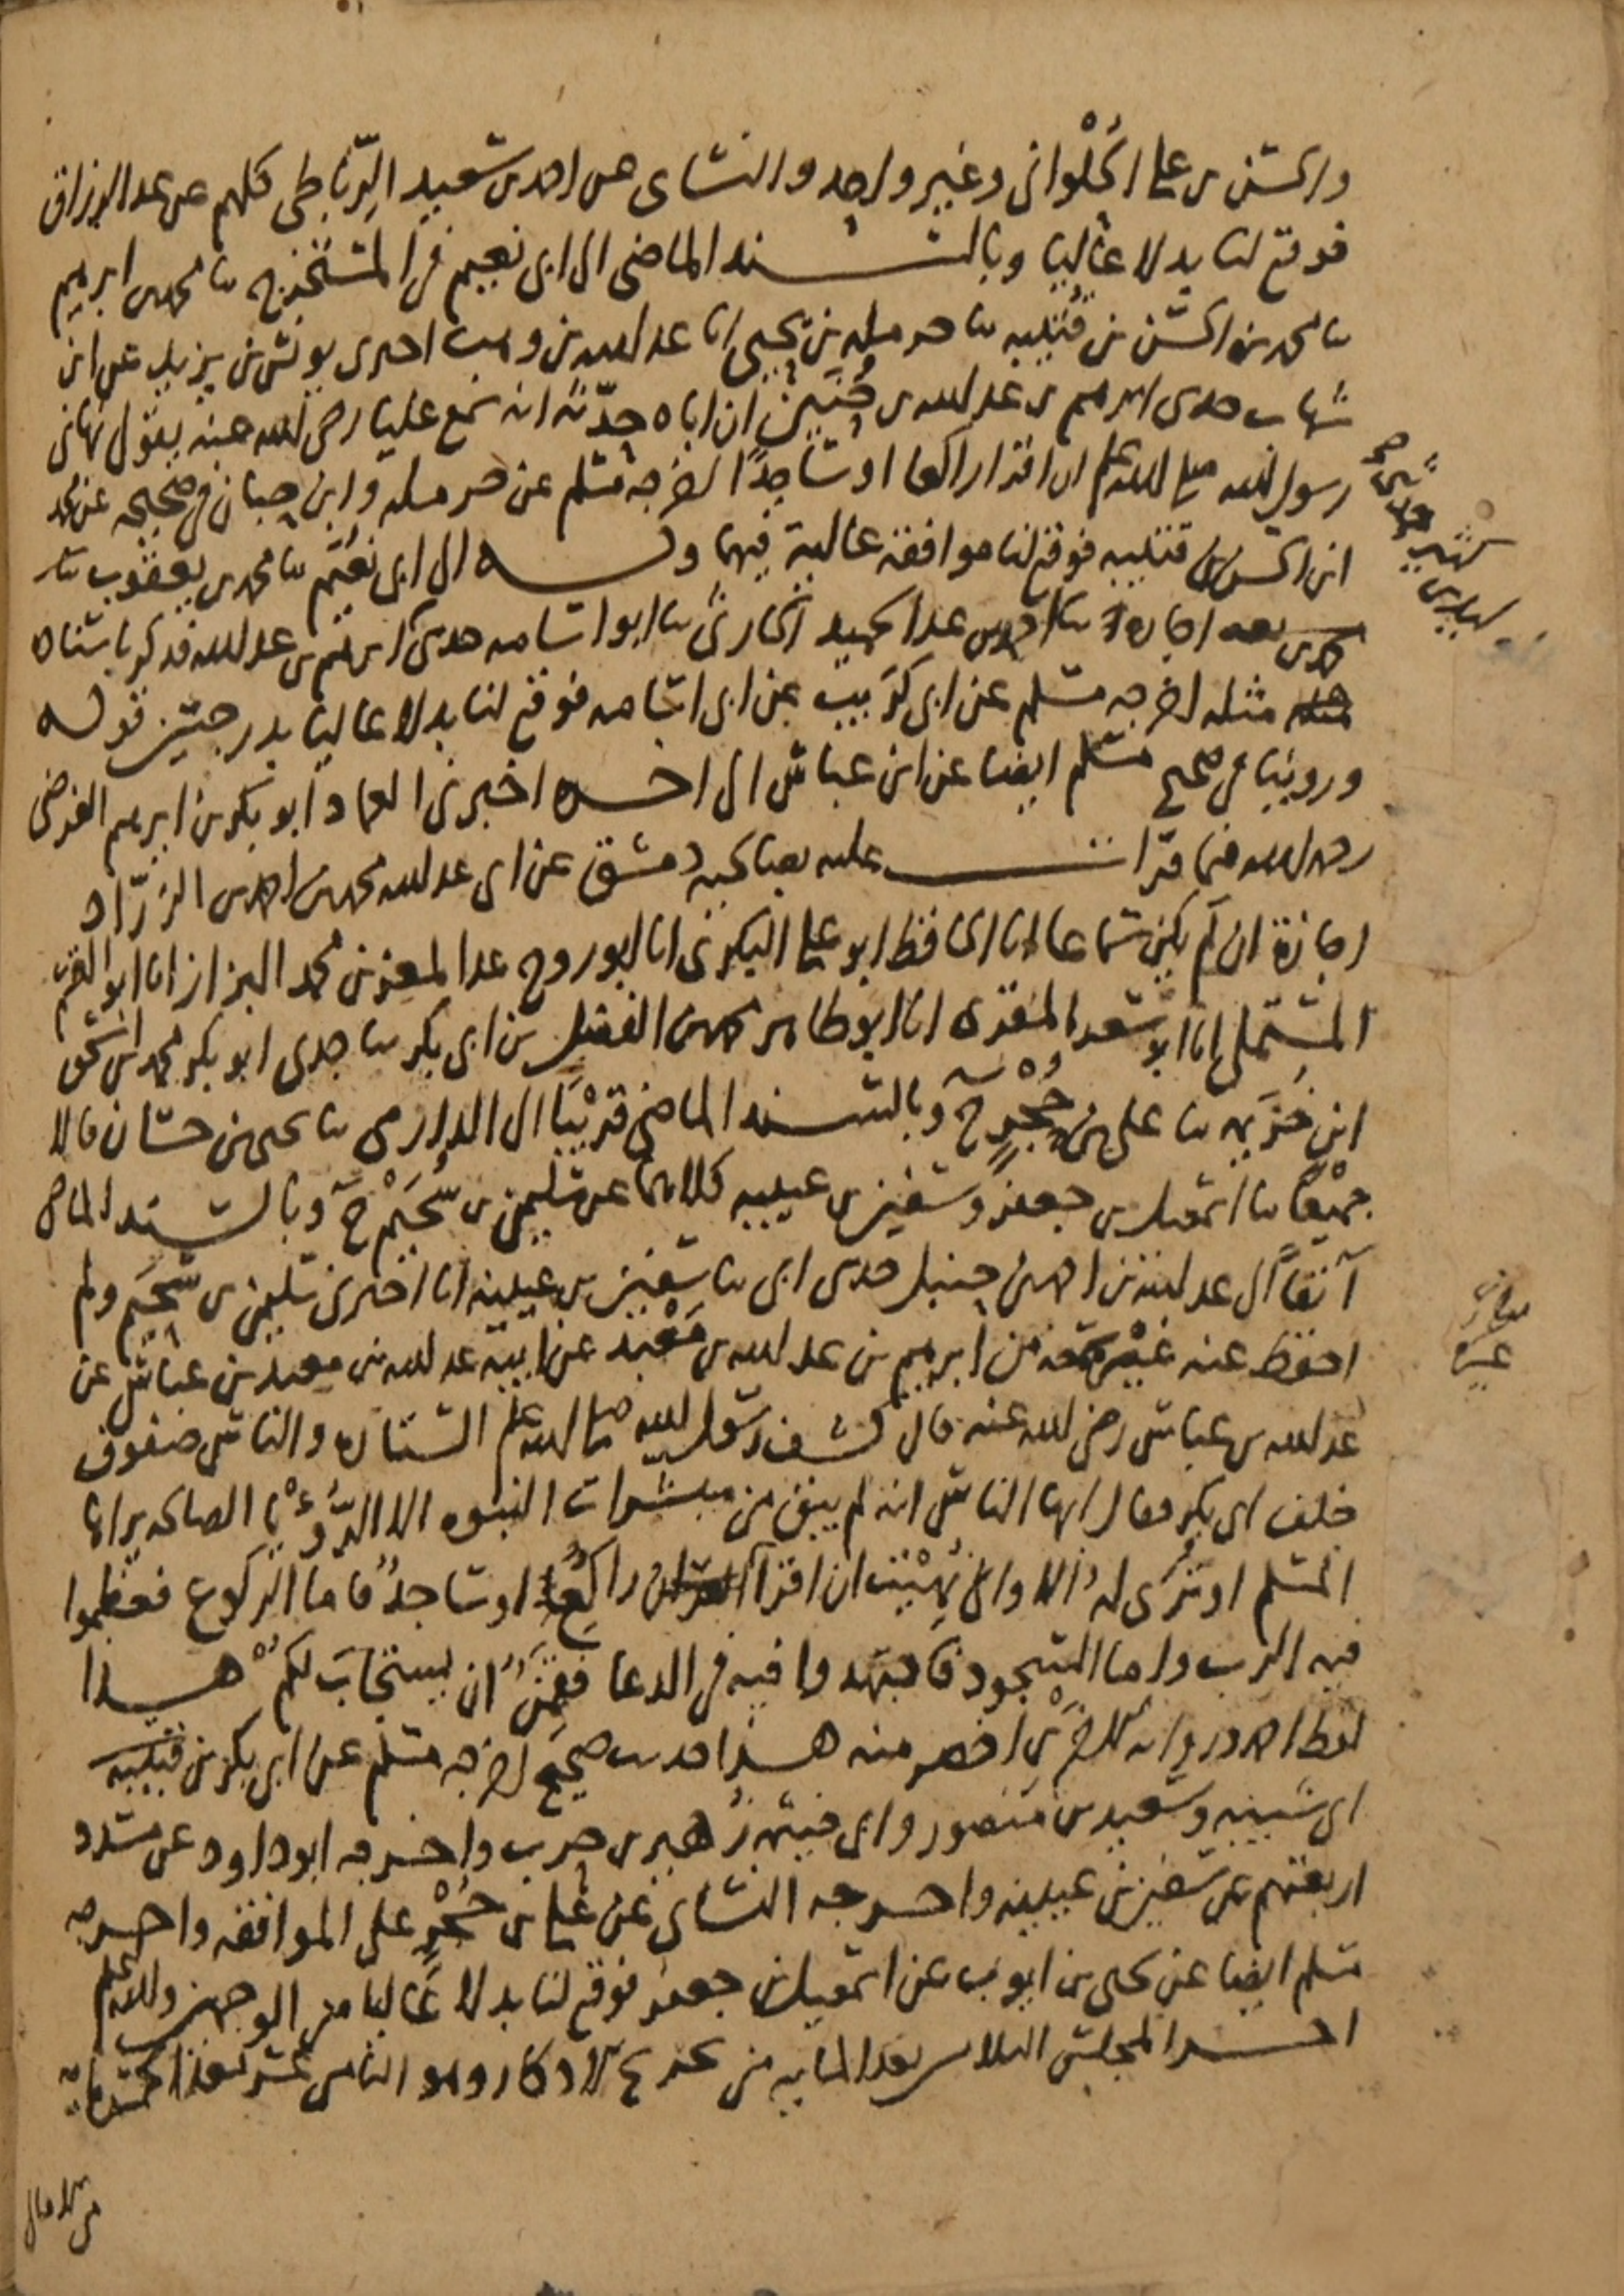 والحسن بن علي الحُلْواني وغير واحد والنسائي عن احمد بن سعيد الرِّباطي كلهم عن عبد الرزاق
فوقع لنا بدلا عاليا وبالسند الماضي الى ابي نعيم في المستخرج ثنا محمد بن ابرهيم
ثنا محمد بن الحسن بن قتيبه ثنا حرمله بن يحيى انا عبد الله بن وهب اخبرني يونس بن يزيد عن ابن
شهاب حدثني ابرهيم بن عبد الله بن حُنَين ان اباه حدّثه انه سمع عليا رضي الله عنه يقول نهاني
رسول الله صلى الله عليه وسلم ان اقرا راكعا او ساجدًا اخرجه مسلم عن حرمله وابن حبان في صحيحه عن محمد
ابن الحسن بن قتيبه فوقع لنا موافقه عالية فيهما وبه الى ابي نُعَيم ثنا محمد بن يعقوب
اجازة ثنا احمد بن عبد الحميد الحارثي ثنا ابو اسامه حدثني ابرهيم بن عبد الله فذكر باسناده
مثله اخرجه مسلم عن ابي كُرَيب عن ابي اسامه فوقع لنا بدلا عاليا بدرجتين قوله
وروينا في صحيح مسلم ايضا عن ابن عباس الى اخره اخبرني العماد ابو بكر بن ابرهيم الفرضي
رحمه الله فيما قرات عليه بصالحية دمشق عن ابي عبد الله محمد بن احمد بن الزرّاد
اجازة ان لم يكن سماعا انا الحافظ ابو علي البكري انا ابو روح عبد المعز بن محمد البزاز انا ابو القسم
المستملي انا ابو سعد المقرئ انا ابو طاهر محمد بن الفضل بن ابي بكر ثنا جدي ابو بكر محمد بن اسحق
ابن خزيمه ثنا علي بن حُجْرٍ ح وبالسند الماضي قريبًا الى الدارمي ثنا يحيى بن حسان قالا
جميعًا ثنا اسمعيل بن جعفر وسفين بن عيينه كلاهما عن سليمن بن سُحَيْم ح وبالسند الماضي
آنفًا الى عبد الله بن احمد بن حنبل حدثني ابي ثنا سفين بن عيينه انا اخبرني سليمن بن سُحَيم ولم
احفظ عنه غيره سمعته من ابرهيم بن عبد الله بن مَعْبد عن ابيه عبد الله بن معبد بن عباس عن
عبد الله بن عباس رضي الله عنه قال كشف رسول الله صلى الله عليه وسلم الستاره والناس صفوف
خلف ابي بكر فقال ايها الناس انه لم يبق من مبشرات النبوه الا الرُّؤْيا الصالحه يراها
المسلم او تُرَى له الا واني نُهِيْت ان اقرآ راكعًا او ساجدًا فاما الركوع فعظموا
فيه الرب واما السجود فاجتهدوا فيه في الدعا فقَمِنٌ ان يستجابَ لكُمْ هذا
لفظ احمد ورواية الاخرين اخصر منه هذا حديث صحيح اخرجه مسلم عن ابي بكر بن
ابي شيبه وسعيد بن منصور وابي خيثمة زُهير بن حرب واخرجه ابو داود عن مسدد
اربعتهم عن سفين بن عيينه واخرجه النسائي عن علي بن حُجْرٍ على الموافقه واخرجه
مسلم ايضا عن يحيى بن ايوب عن اسمعيل بن جعفر فوقع لنا بدلا عاليا من الوجهين والله اعلم
اخر المجلس الثلاثين بعد المايه من تخريج الاذكار وهو الثامن عشر بعد الخمسمائة